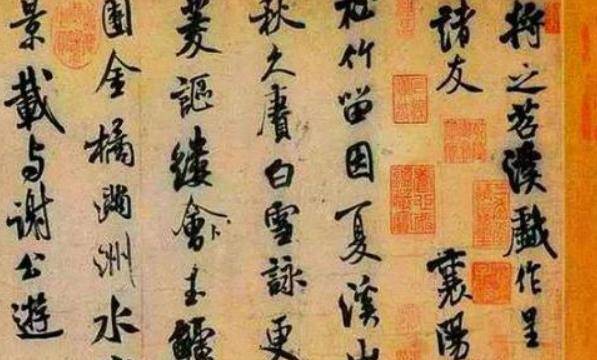 將之苕溪戲作呈
諸友 襄陽
松竹留因夏溪山
秋久賡白雪詠更
菱謳縷會玉鱸
團金橘滿洲水
景載與謝公遊